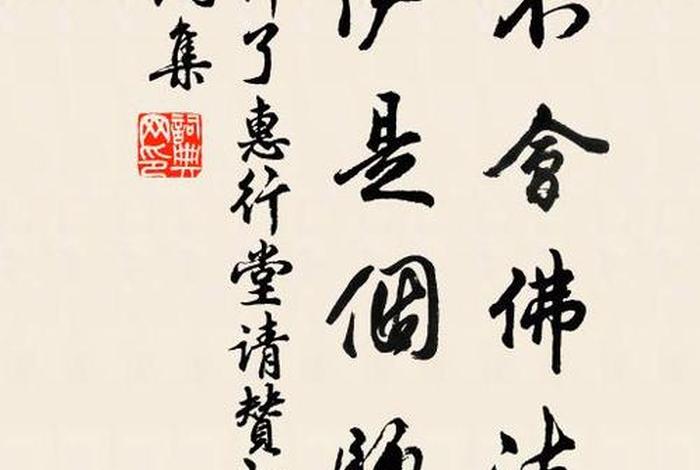 不會佛法
是個
了惠行堂请贊
集
詞典网印